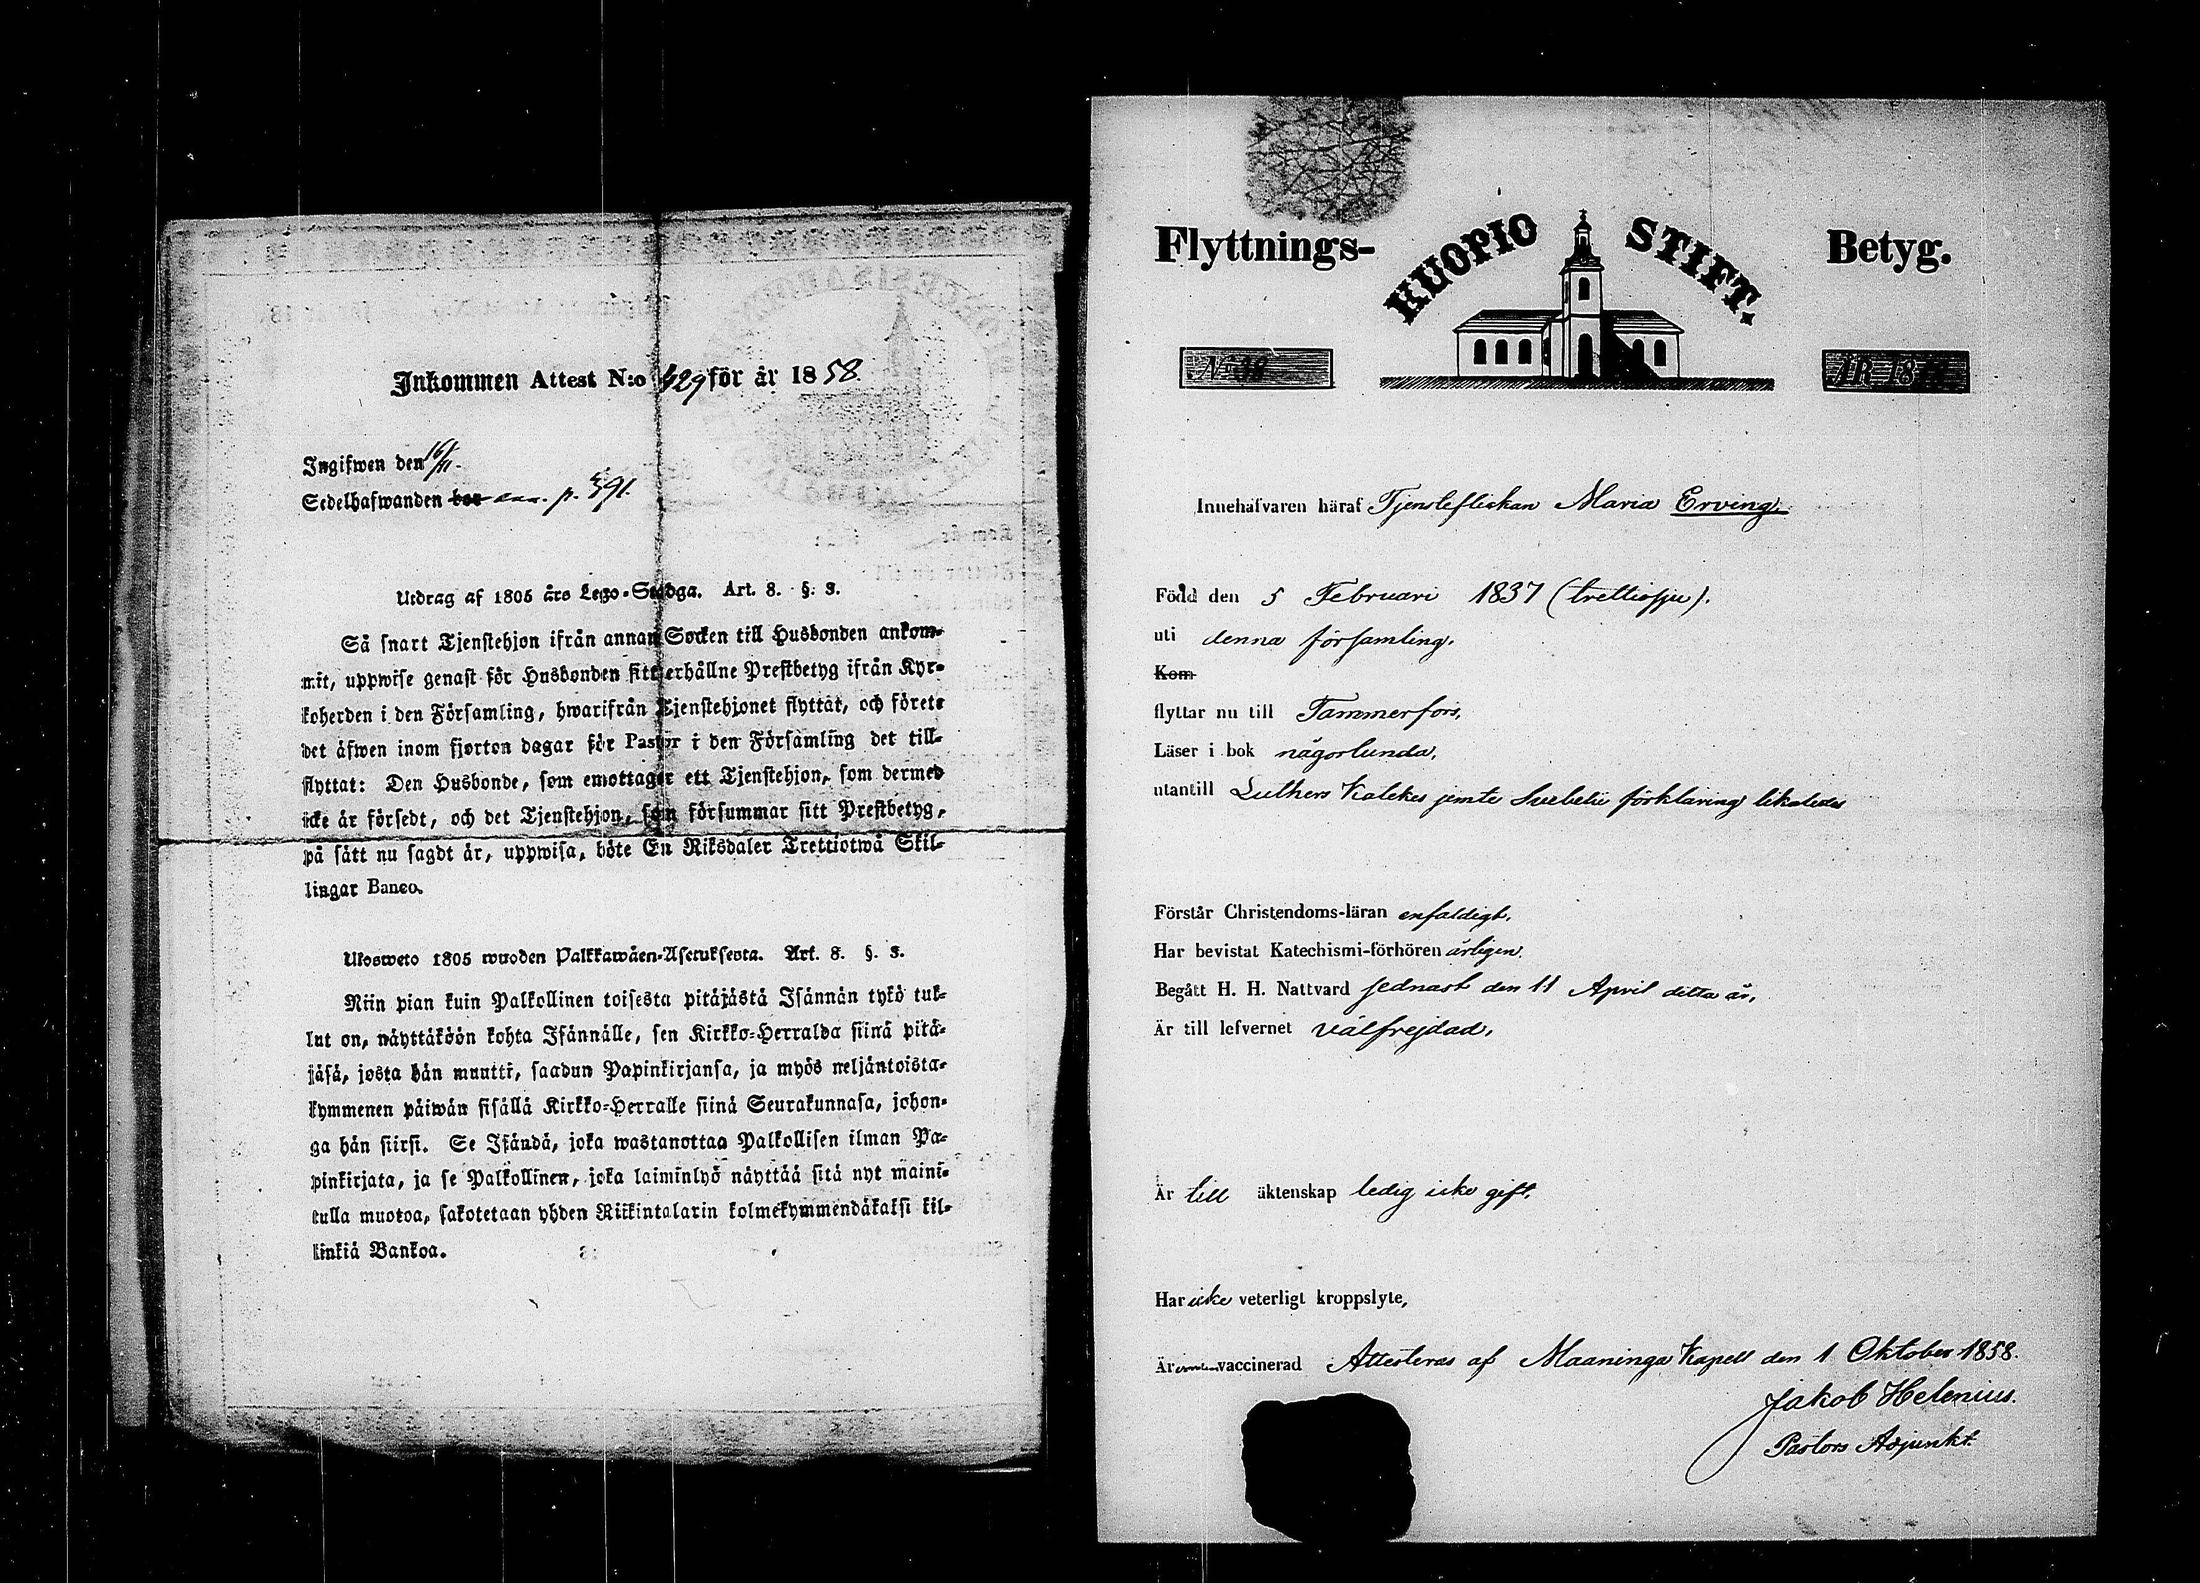 Inkommen Attest N:o 429 för år 1858.
Ingifwen den 16/11.
Sedelhafwanden p. 591.
Utdrag af 1805 års Lego-Stadga. Art. 8. §. 3.
Så snart Tjenstehjon ifrån annan Socken till Husbonden ankom-
mit, uppwise genast för Husbonden sitt erhållne Prestbetyg ifrån Kyr-
koherden i den Församling, hwarifrån Tjenstehjonet flyttat, och förete
det äfwen inom fjorton dagar för Pastor i den Församling det till-
flyttat: Den Husbonde, som emottager ett Tjenstehjon, som dermed
icke är försedt, och det Tjenstehjon, som försummar sitt Prestbetyg,
på sätt nu sagdt är, uppwisa, böte En Riksdaler Trettiotwå Skil-
lingar Banco.
Ulosweto 1805 wuoden Palkkawäen-Asetuksesta. Art. 8. §. 3.
Niin pian kuin Palkollinen toisesta pitäjästä Isännän tykö tul-
lut on, näyttäköön kohta Isännälle, sen Kirkko-Herralda siinä pitä-
jäsä, josta hän muutti, saadun Papinkirjansa, ja myös neljäntoista-
kymmenen päiwän sisällä Kirkko-Herralle siinä Seurakunnasa, johon-
ga hän siirsi. Se Isändä, joka wastanottaa Palkollisen ilman Pa-
pinkirjata, ja se Palkollinen, joka laiminlyö näyttää sitä nyt maini-
tulla muotoa, sakotetaan yhden Riikintalarin kolmekymmendäkaksi kil-
linkiä Bankoa.
Flyttnings- KUOPIO STIFT. Betyg.
No 38 ÅR 18
Innehafvaren häraf Tjensteflickan Maria Erving,
Född den 5 Februari 1837 (trettiosju).
uti denna församling.
Kom
flyttar nu till Tammerfors,
Läser i bok någorlunda,
utantill Luthers Katekes jemte Svebelii förklaring likaledes
Förstår Christendoms-läran enfaldigt,
Har bevistat Katechismi-förhören årligen.
Begått H. H. Nattvard sednast den 11 April detta år,
Är till lefvernet välfrejdad,
Är till äktenskap ledig icke gift,
Har icke veterligt kroppslyte,
Är vaccinerad Attesteras af Maaninga Kapell den 1 Oktober 1858.
Jakob Helenius.
Pastors Adjunkt.